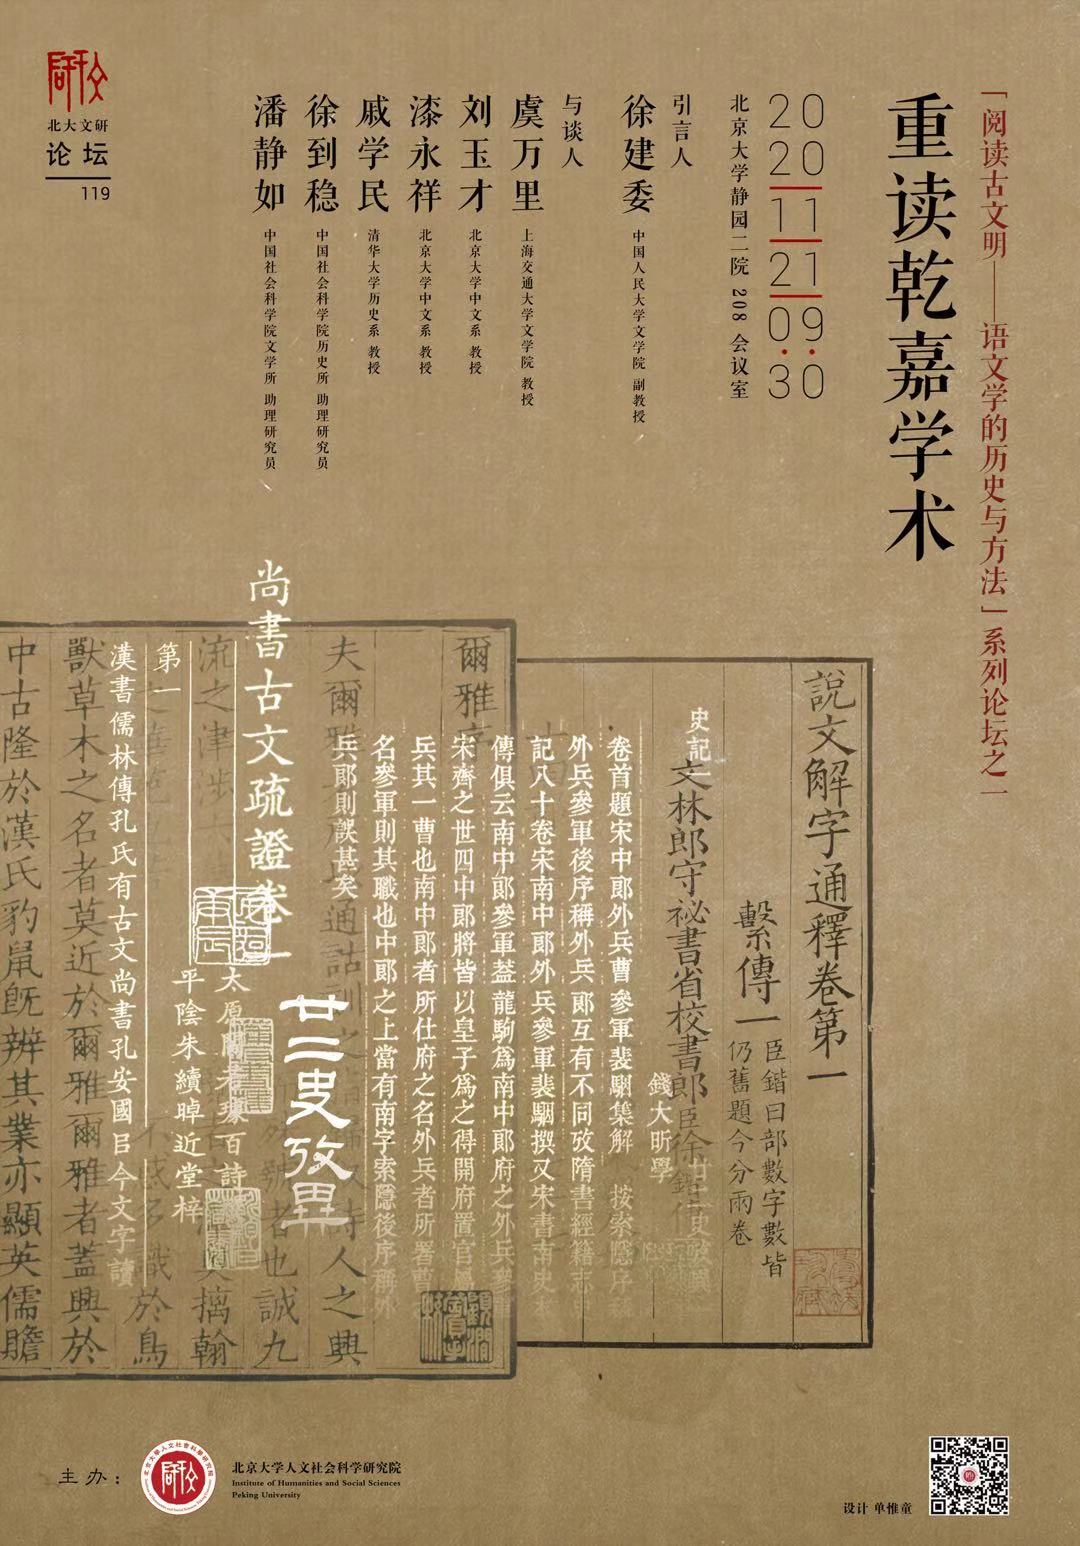 「阅读古文明——语文学的历史与方法」系列论坛之一
重读乾嘉学术
2020
11
21
09:30
北京大学静园二院 208 会议室
引言人
徐建委 中国人民大学文学院 副教授
与谈人
虞万里 上海交通大学文学院 教授
刘玉才 北京大学中文系 教授
漆永祥 北京大学中文系 教授
戚学民 清华大学历史系 教授
徐到稳 中国社会科学院历史所 助理研究员
潘静如 中国社会科学院文学所 助理研究员
北大文研
论坛
119
說文解字通釋卷第一
繫傳一
臣鍇曰部數字數皆
仍舊題今分兩卷
文林郎守祕書省校書郎臣徐鍇傳
史記
錢大昕學
卷首題宋中郎外兵曹參軍裴駰集解 按索隱序
外兵參軍後序稱外兵郎互有不同攷隋書經籍志
記八十卷宋南中郎外兵參軍裴駰撰又宋書南史
傳俱云南中郎參軍葢龍駒爲南中郎府之外兵參
宋齊之世四中郎將皆以皇子爲之得開府置官屬
兵其一曹也南中郎者所仕府之名外兵者所署曹
名參軍則其職也中郎之上當有南字索隱後序稱外
兵郎則誤甚矣
爾雅序
夫爾雅
通詁訓之
詩人之興
廿二史攷異
尚書古文疏證卷一
太原閻若璩百詩
平陰朱續晫近堂梓
第一
漢書儒林傳孔氏有古文尚書孔安國吕今文字讀
者也誠九
流之津涉
摛翰
於鳥
獸草木之名者莫近於爾雅爾雅者蓋興於
中古隆於漢氏豹鼠旣辨其業亦顯英儒贍
主办：
北京大学人文社会科学研究院
Institute of Humanities and Social Sciences
Peking University
设计 单惟童